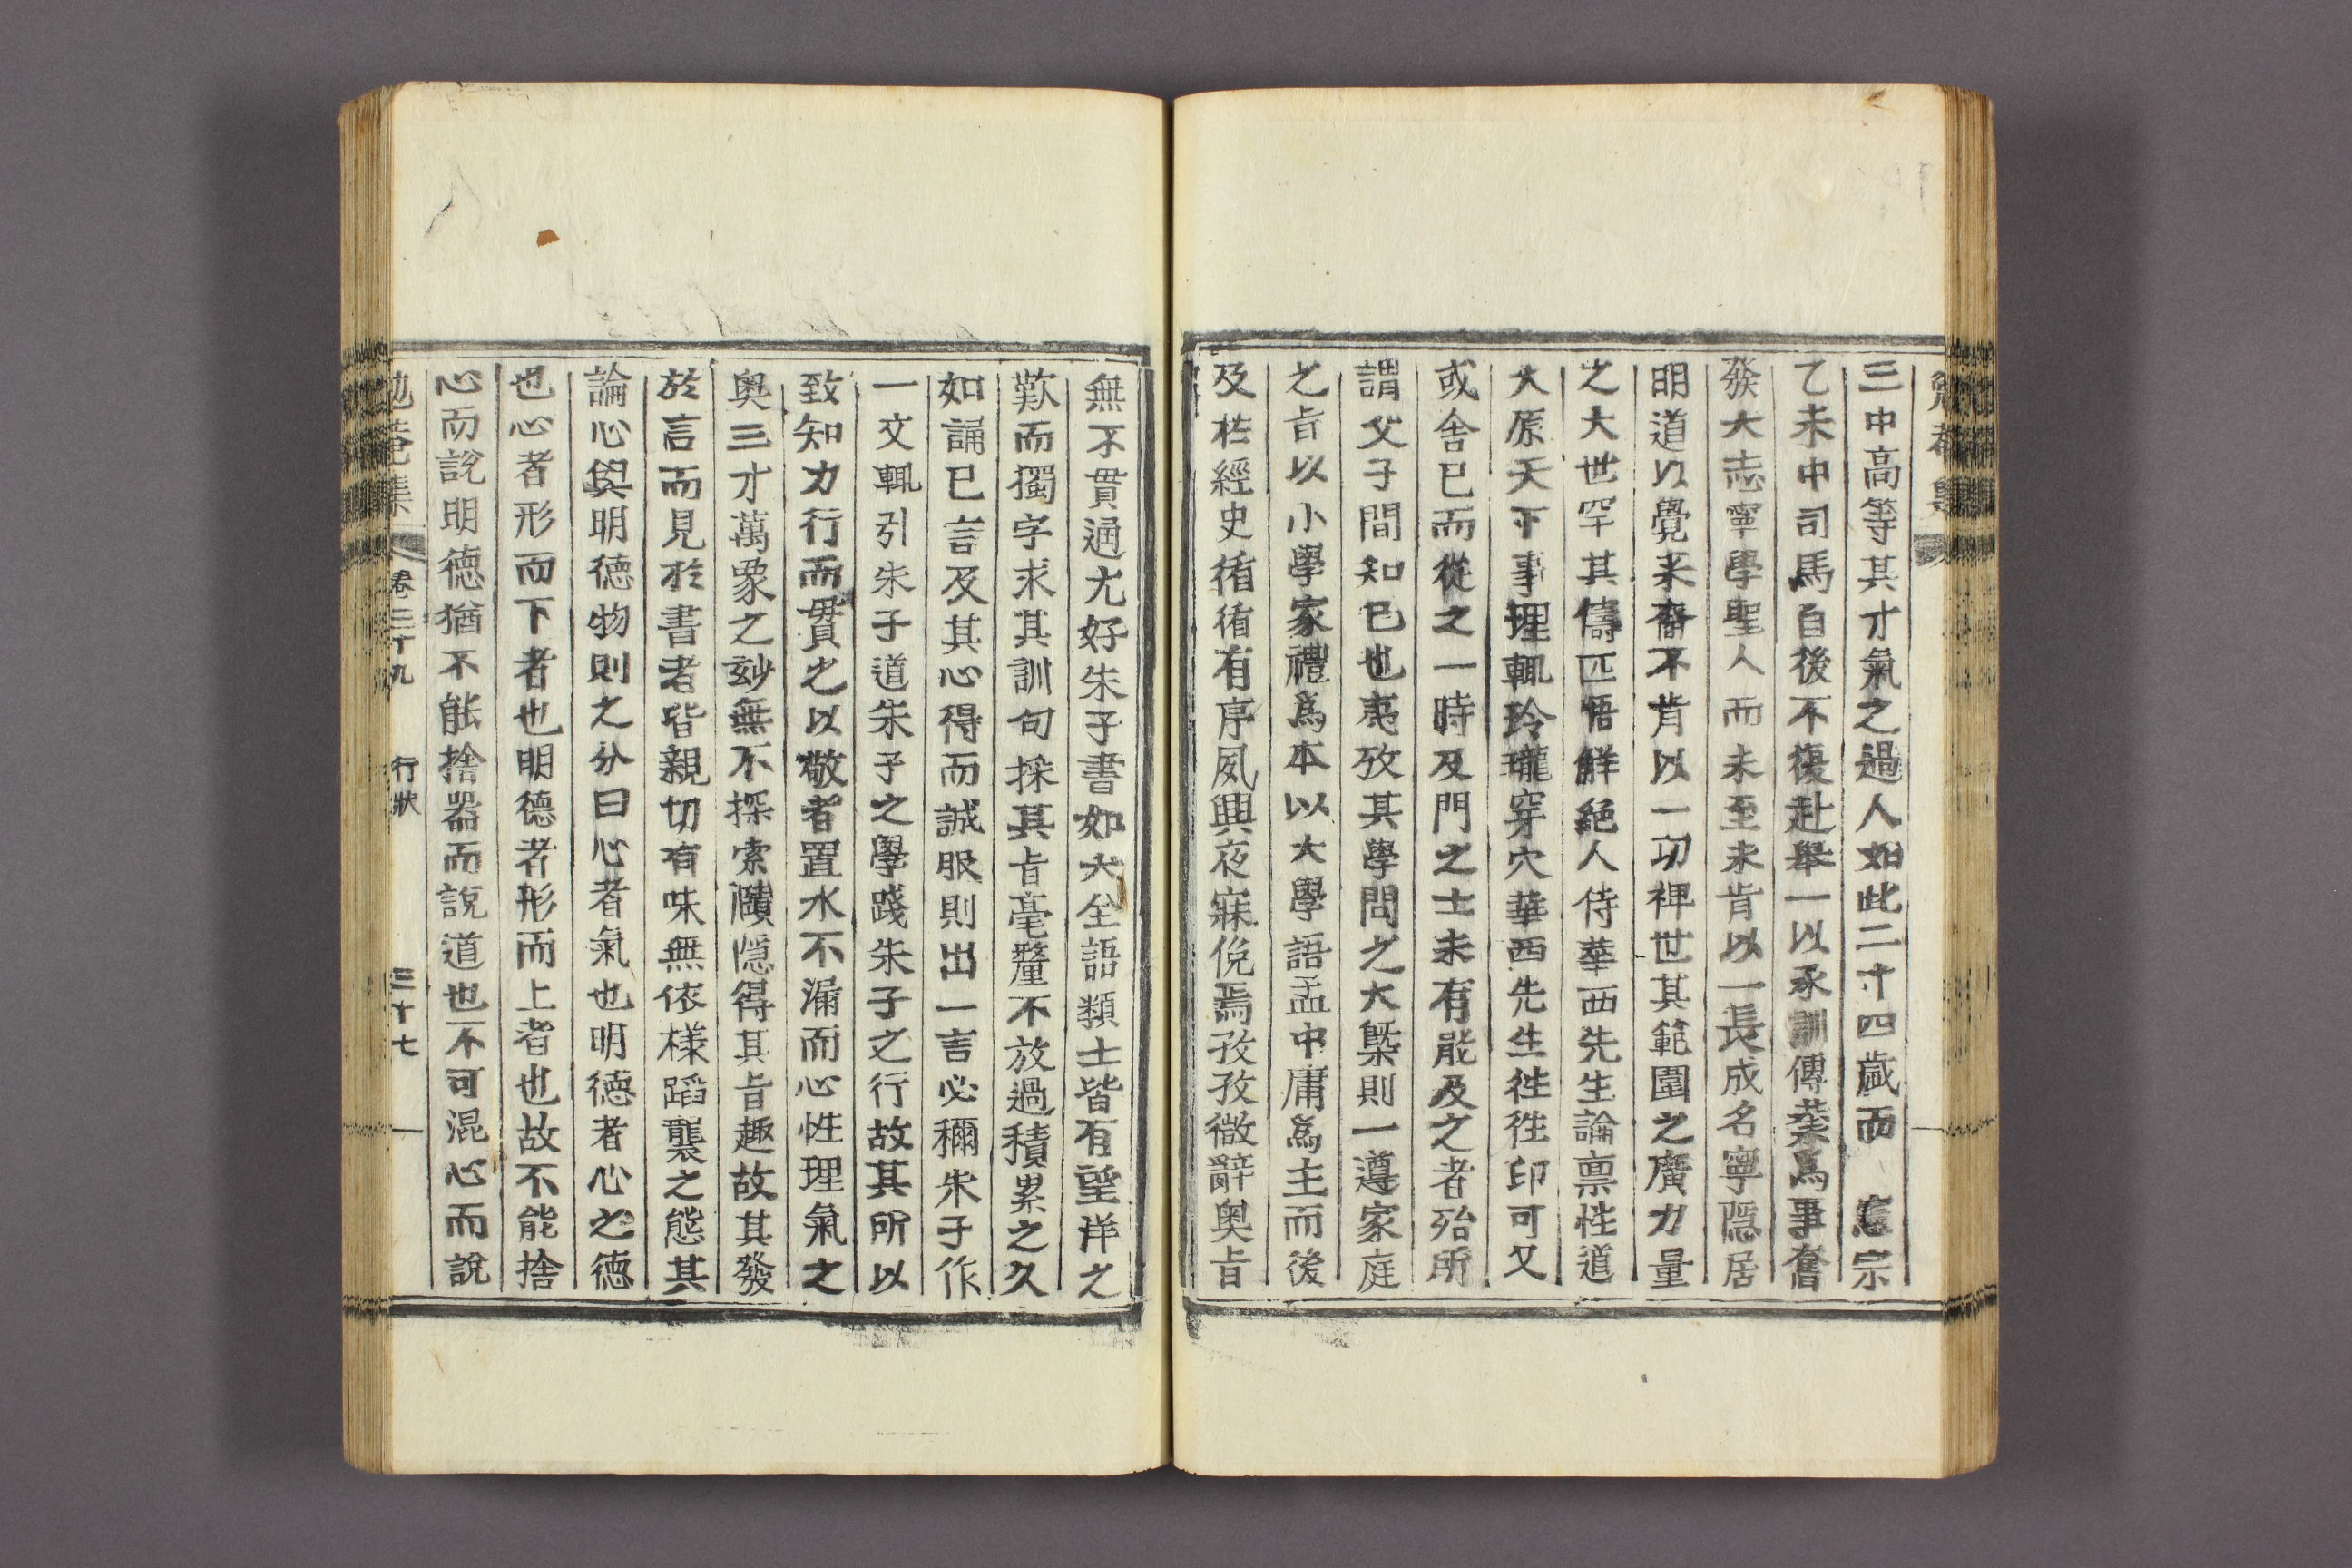 勉菴集
三中高等其才氣之過人如此二十四歲而 憲宗
乙未中司馬自後不復赴擧一以承訓傳業爲事奮
發大志寧學聖人而未至未肯以一長成名寧隱居
明道以覺来裔不肯以一功裨世其範圍之廣力量
之大世罕其儔匹悟解絕人侍華西先生論禀性道
大原天下事理輒玲瓏穿穴華西先生徃徃印可又
或舍已而從之一時及門之士未有能及之者殆所
謂父子間知已也夷攷其學問之大槩則一遵家庭
之旨以小學家禮爲本以大學語孟中庸爲主而後
及於經史循循有序夙興夜寐俛焉孜孜微辭奥旨
無不貫通尤好朱子書如大全語類士皆有望洋之
歎而獨字求其訓句探其旨毫釐不放過積累之久
如誦已言及其心得而誠服則出一言必稱朱子作
一文輒引朱子道朱子之學踐朱子之行故其所以
致知力行而貫之以敬者置水不漏而心性理氣之
奥三才萬象之玅無不探索隱得其旨趣故其發
於言而見於書者皆親切有味無依樣蹈襲之態其
論心與明德物則之分曰心者氣也明德者心之德
也心者形而下者也明德者形而上者也故不能捨
心而說明德猶不能捨器而說道也不可混心而說
勉菴集 卷三十九 行狀 三十七